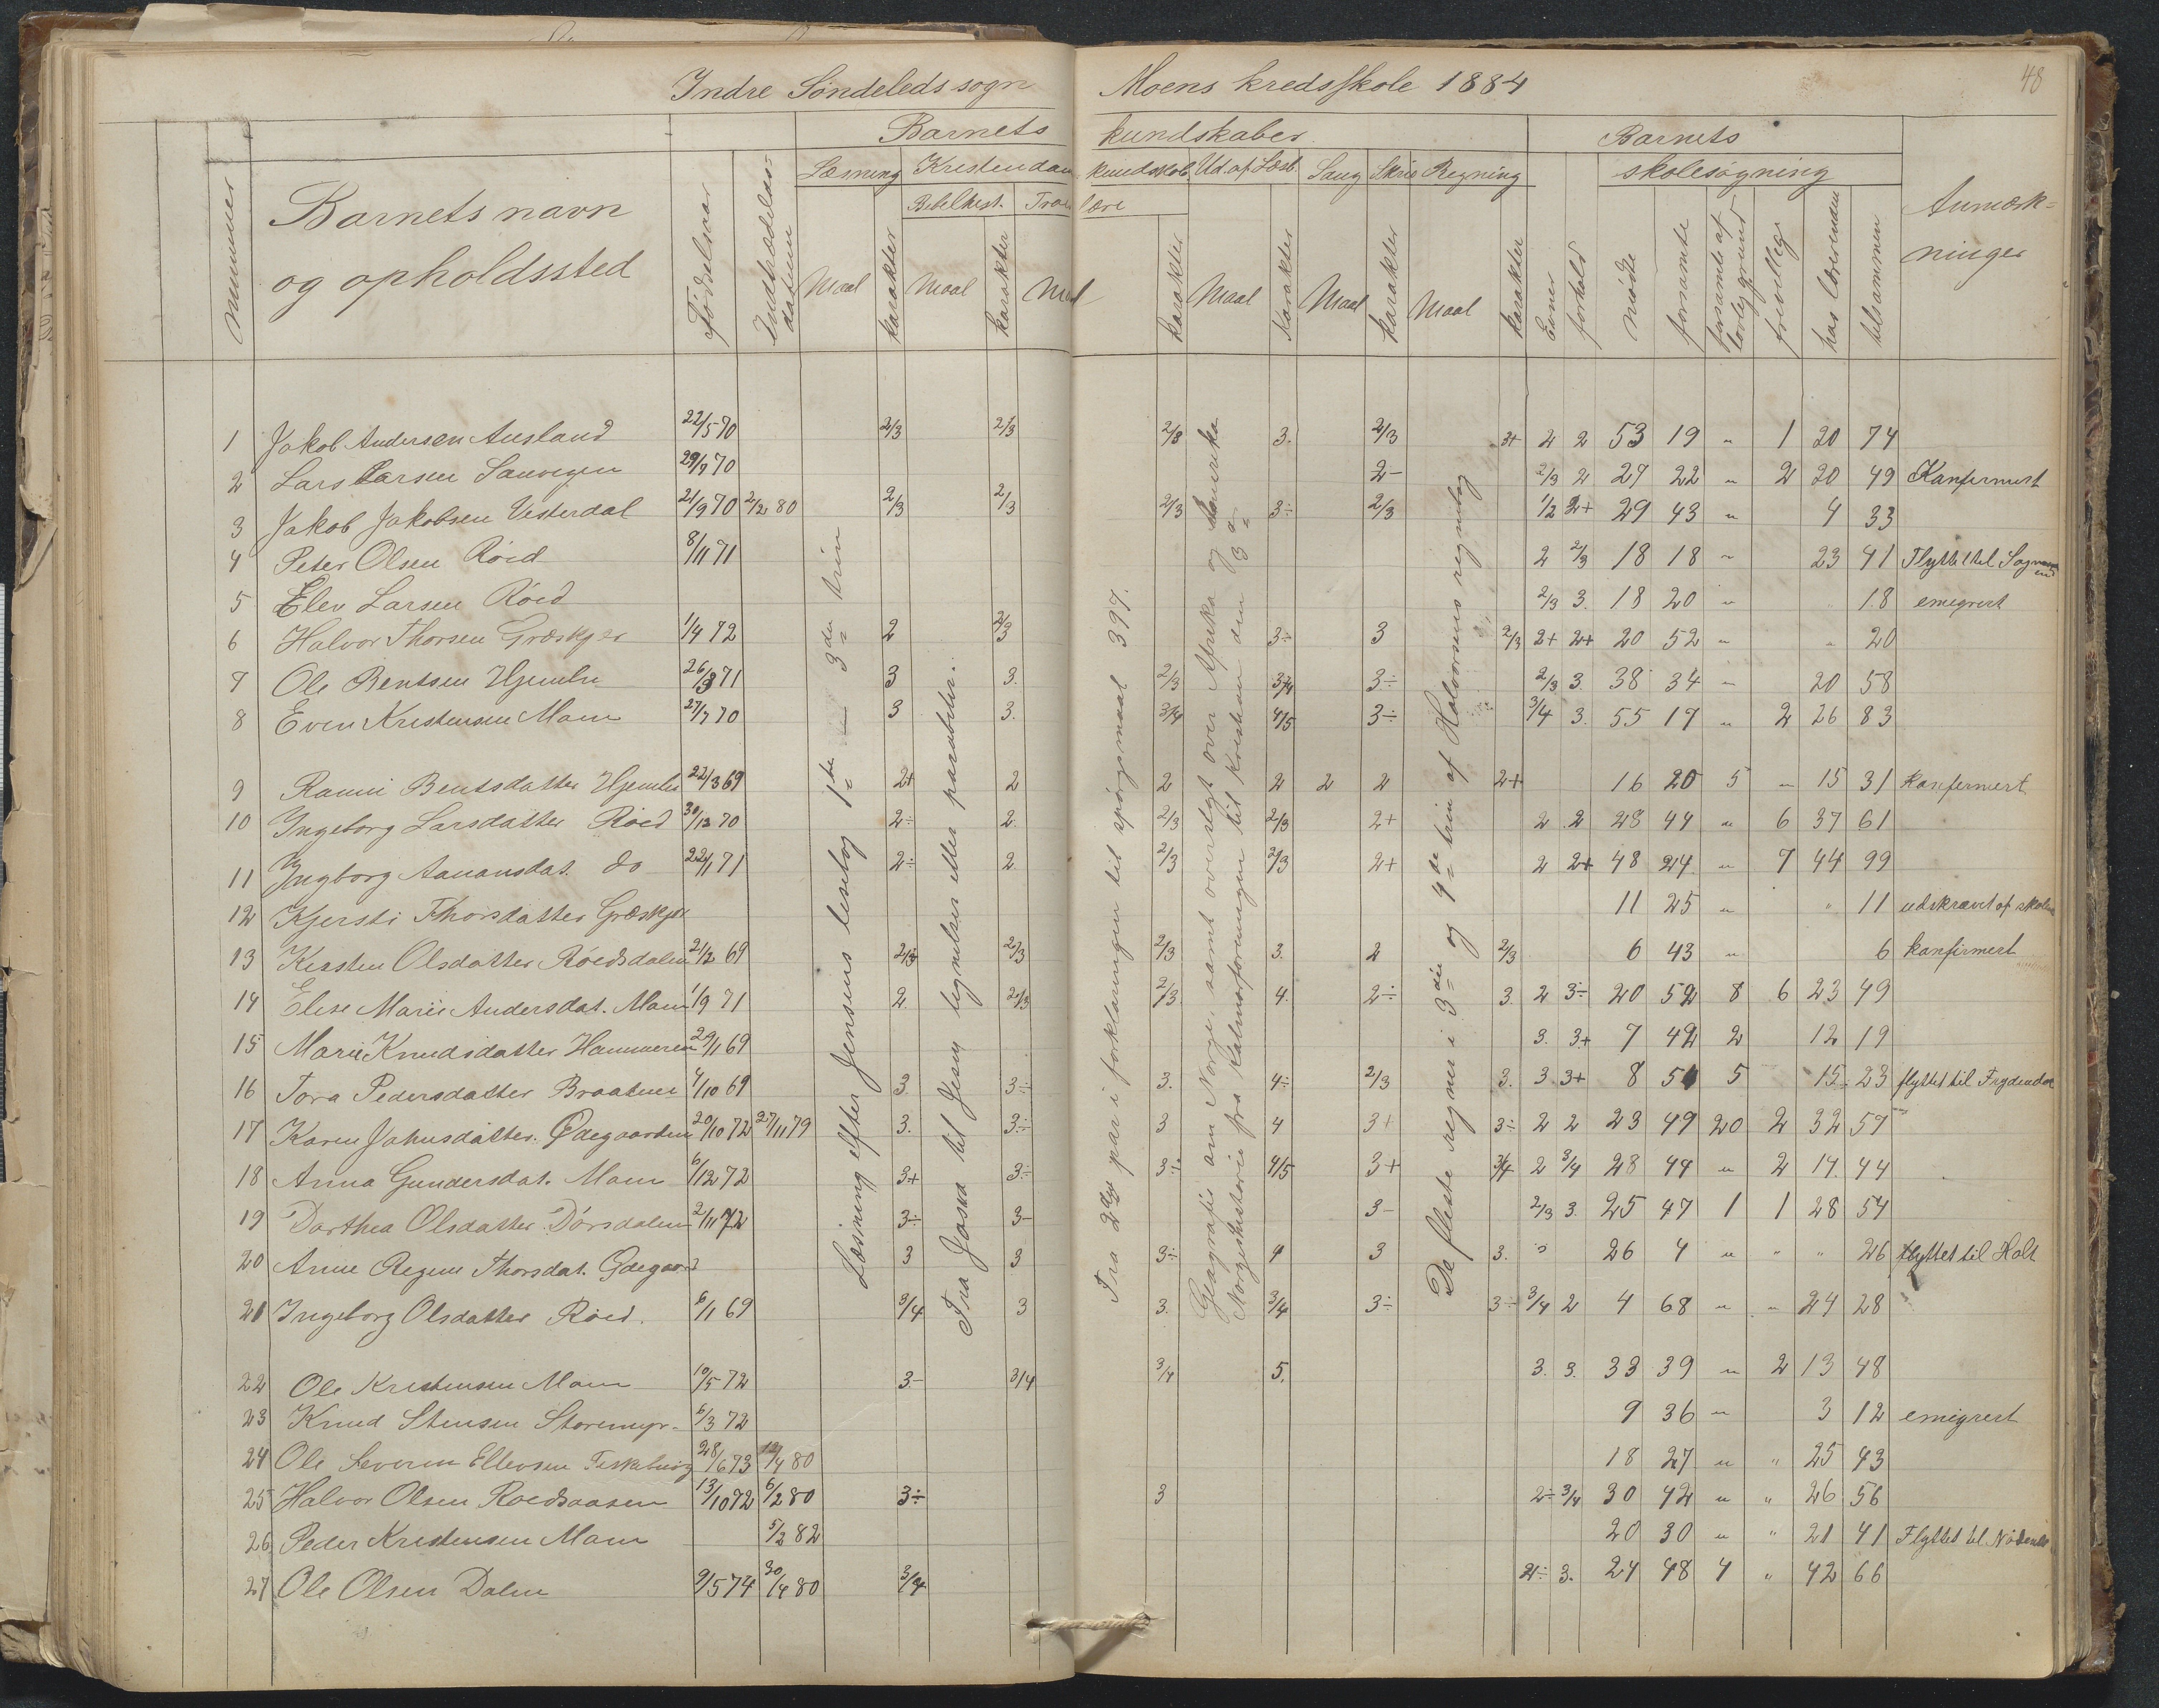 48
Indre Söndeleds sogn Moens kredsskole 1884
Barnets kundskaber Barnets
Læsning Kristendom kundskab. Ud. af Læseb. Sang Skriv Regning skolesøgning
Bibelhist. Troes lære
nummer Barnets navn og opholdssted Fødselsaar Indtrædelses datum Maal karakter Maal karakter Maal karakter Maal karakter Maal karakter Maal karakter Evner forhold mødte forsømte forsømte af lovlig grund frivillige has læreren tilsammen Anmærk= ninger
1 Jakob Andersen Ausland 22/5 70 2/3 2/3 2/3 3. 2/3 3+ 2 2 53 19 " 1 20 74
2 Lars Larsen 29/7 70 2- 2/3 2 27 22 " 2 20 49 Konfirmert
3 Jakob Jakobsen Vesterdal 21/9 70 2/2 80 2/3 2/3 2/3 3÷ 2/3 1/2 2+ 29 43 " 4 33
4 Peter Olsen Röed 8/11 71 2 2/3 18 18 " 23 41 Flyttet til
5 Elev Larsen Röed 2/3 3. 18 20 " 18 emigrert
6 Halvor Thorsen Græskjær 1/4 72 2 2/3 3÷ 3 2/3 2+ 2+ 20 52 " " 20
7 Ole Bentsen Hjemli 26/3 71 3 3. 2/3 3/4 3÷ 2/3 3. 38 34 " 20 58
8 Even Kristensen Moen 27/7 70 3 3. 3/4 4/5 3÷ 3/4 3. 55 17 " 2 26 83
9 Bentsdatter Hjemli 22/3 69 2+ 2 2 2 2 2 2+ 16 20 5 " 15 31 konfermert
10 Ingeborg Larsdatter Röed 30/12 70 2÷ 2. 2/3 2/3 2+ 2 2 28 44 " 6 37 61
11 Ingborg Aanonsdat. do 22/1 71 2÷ 2 2/3 2/3 2+ 2 2+ 48 24 " 7 44 99
12 Kjersti Thorsdatter Græskjær 11 25 " " 11 udskrevet af skolen
13 Kirsten Olsdatter Röedsdalen 2/2 69 2/3 2/3 2/3 3. 2 2/3 6 43 " 6 konfirmert
14 Elise Marie Andersdat. Moen 1/9 71 2 2/3 2/3 4. 2÷ 3. 2 3÷ 20 52 8 6 23 49
15 Marie Knudsdatter Hammeren 29/1 69 3. 3+ 7 42 2 12 19
16 Tora Pedersdatter Braaten 4/10 69 3 3÷ 3. 4÷ 2/3 3. 3 3+ 8 51 5 15 23 flyttet til
17 Karen Johnsdatter. Ødegaarden 20/10 72 27/11 79 3. 3÷ 3 4 3+ 3÷ 2 2 23 49 20 2 32 57
18 Anna Gundersdat. Moen 6/12 72 3+ 3÷ 3÷ 4/5 3+ 3/4 2 3/4 28 44 " 2 14 44
19 Dorthea Olsdatter Dörsdalen 2/11 72 3÷ 3- 3- 2/3 3. 25 47 1 1 28 54
20 Anne Regine Thorsdat. Ødegaard 3 3 3÷ 4 3 3. 26 4 " " " 26 flyttet til Holt
21 Ingeborg Olsdatter Röed. 6/1 69 3/4 3 3. 3/4 3÷ 3÷ 3/4 2 4 68 " " 24 28
22 Ole Kristensen Moen 10/5 72 3- 3/4 3/4 5. 3. 3. 33 39 " 2 13 48
23 Knud Stensen Storemyr. 6/3 72 9 36 " 3 12 emigrert
24 Ole Severin Ellevsen 28/6 73 12/4 80 18 27 " " 25 43
25 Halvor Olsen Roedsaasen 13/10 72 6/2 80 3÷ 3 2÷ 3/4 30 42 " " 26 56
26 Peder Kristensen Moen 5/2 82 20 30 " " 21 41 Flyttet til
27 Ole Olsen Dalen 9/5 74 30/4 80 3/4 2÷ 3. 24 48 4 " 42 66
Læsning efter Jensens læsebog 1ste — 3die trin
Fra Josva til Jesu lignelser eller parabeler.
Fra 2den part i forklaringen til spörgsmaal 397.
Geografie om Norge, samt oversigt over Afrika og Amerika
Norgeshistorie fra Kalmarforeningen til Kristian den 3die
De fleste regner i 3die og 4de trin af Halvorsens regnebog